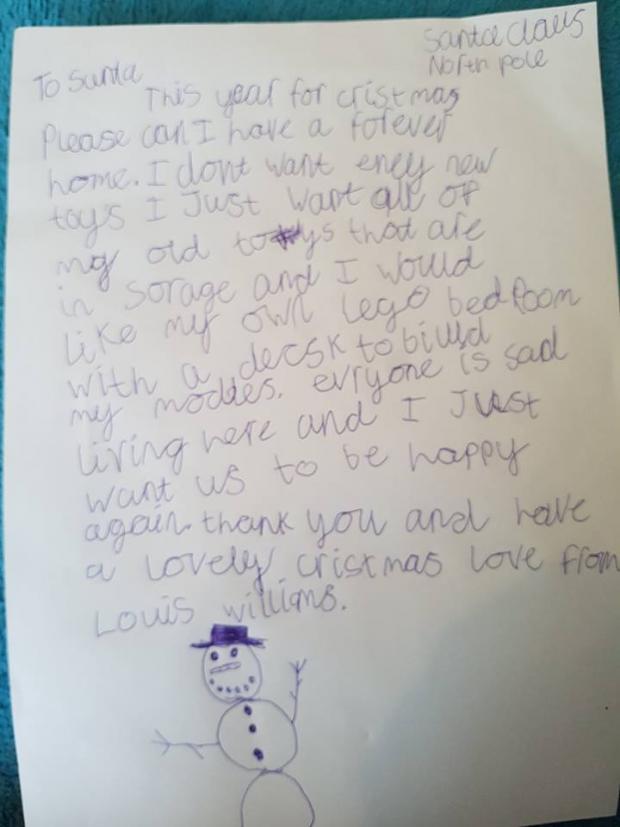 Santa claus
North pole
To Santa
This year for cristmas
Please can I have a forever
home. I dont want eney new
toys I Just want all of
my old toys that are
in sorage and I would
like my own lego bedroom
with a decsk to biulld
my moddes. evryone is sad
living here and I Just
want us to be happy
again. thank you and have
a lovely cristmas love from
Louis williams.